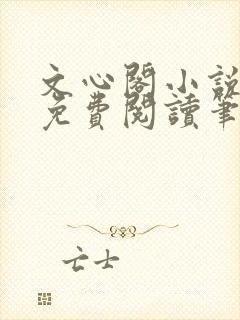 文心閣小說
免費閱讀筆
亡士